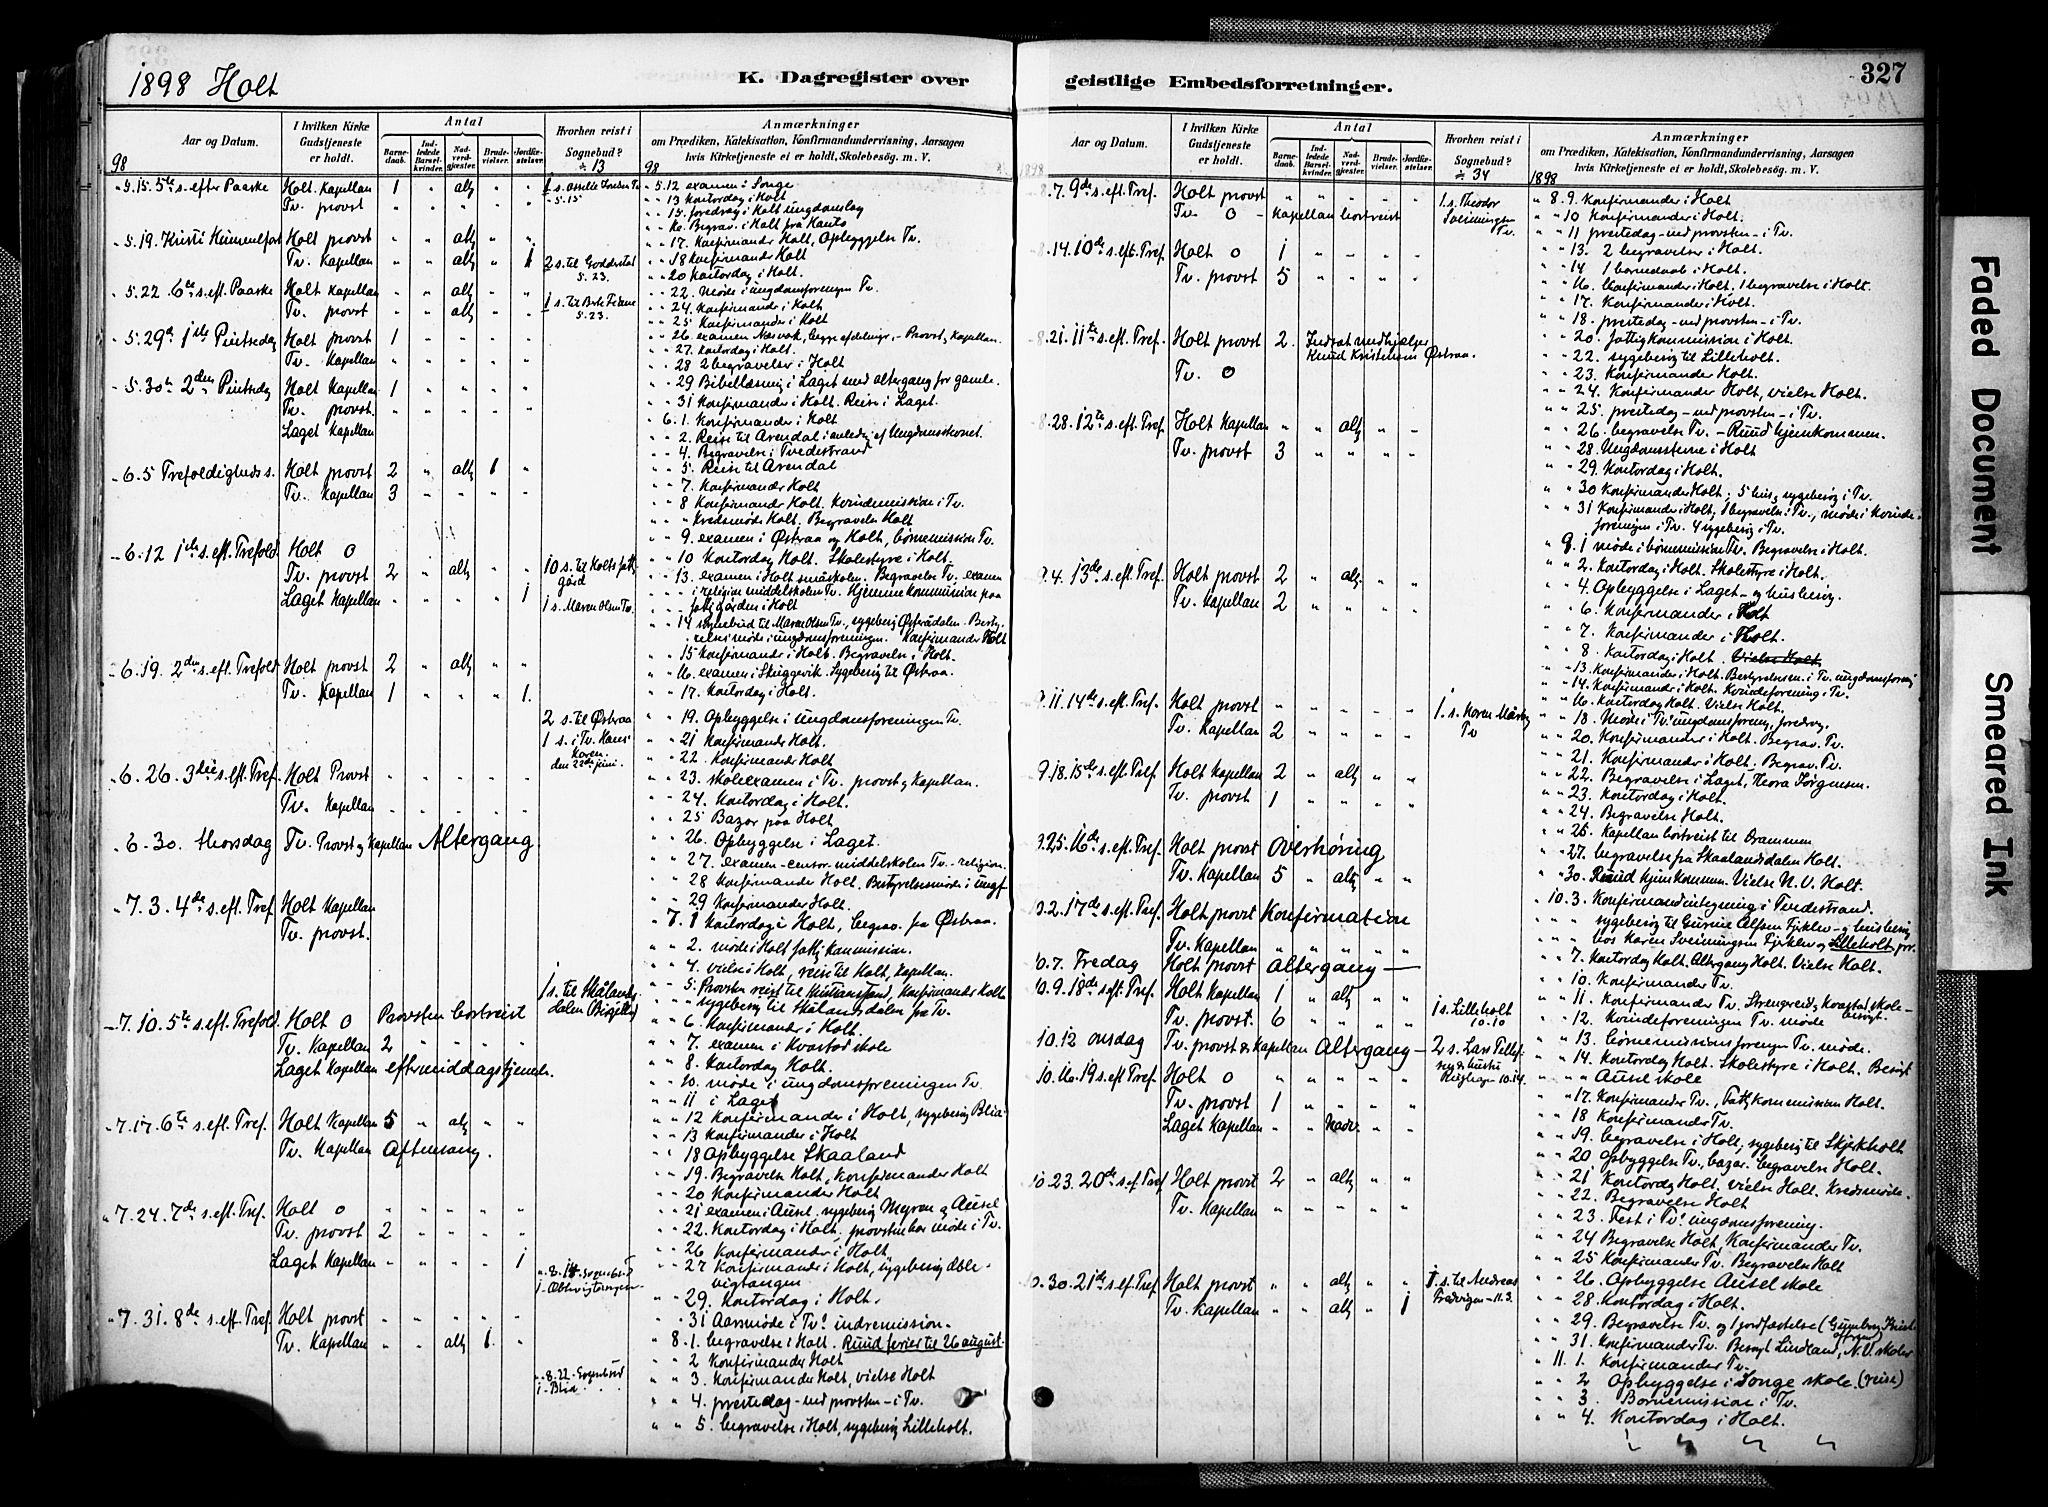 1898 Holt
K. Dagregister over
geistlige Embedsforretninger.
327
Aar og Datum.
I hvilken Kirke Gudstjeneste er holdt.
Antal
Barnedaab.
Indledede Barselkvinder.
Nadverdgjester.
Brudevielser.
Jordfæstelser.
Hvorhen reist i Sognebud?
÷ 13
Anmærkninger
om Prædiken, Katekisation, Konfirmandundervisning, Aarsagen
hvis Kirketjeneste ei er holdt, Skolebesøg. m. V.
98
98
5.15. 5te s. efter Paaske Holt. Kapellan 1 " altg " "
Tv. provst " " " " "
5.19. Kristi Himmelfart Holt provst " " altg " "
Tv. Kapellan " " altg " 1
2 s. til Goderstad 5.23.
5.22. 6te s. eft. Paaske Holt Kapellan " " altg " "
Tv. provst " " altg " "
5.29de 1ste Pintsedag Holt provst 1 " " " "
Tv. Kapellan " " " " "
5.30te 2den Pintsedag Holt Kapellan 1 " " " "
Tv. provst. " " " " "
Laget Kapellan
6.5 Trefoldigheds s. Holt provst 2 " altg 1 "
Tv. Kapellan 3 " " " "
6.12 1ste s. eft. Trefold Holt 0
Tv. provst 2 " altg " "
10 s. til Holts fattiggård
Laget Kapellan " " " " 1
1 s. Maren Olsen Tv.
6.19. 2den s. eft. Trefold Holt provst 2 " altg " "
Tv. Kapellan 1 " " " 1.
2 s. til Østraa
1 s. i Tv. Hans Karen. den 22de juni.
6.26. 3die s. eft. Tref. Holt Provst " " " " "
Tv. Kapellan " " " " "
6.30. thorsdag Tv. Provst og Kapellan Altergang
7.3. 4de s. eft. Tref. Holt Kapellan
Tv. provst.
7.10. 5te s. eft. Trefold. Holt 0 Provsten bortreist
Tv. Kapellan 2 " " " "
Laget Kapellan eftermiddagstjeneste
7.17. 6te s. eft. Tref. Holt Kapellan 5 " altg " "
Tv. Kapellan Aftensang.
7.24. 7de s. eft. Tref. Holt 0 " " " " "
Tv. provst 2 " " " "
Laget Kapellan " " " " 1
7.31. 8de s. eft. Tref. Holt provst " " " " "
Tv. Kapellan " " altg 1. "
8.22 Sognebud i Blia
5.12 examen i Songe
" " 13 Kontordag i Holt
" " 15. foredrag i Holt ungdomslag
" " 16. Begrav. i Holt fra
" " 17. Konfirmander Holt, Opbyggelse Tv.
" " 18 Konfirmander Holt
" " 20 Kontordag i Holt.
" " 22. Møde i ungdomsforeningen Tv.
" " 24. Konfirmander i Holt
" " 25 Konfirmander i Holt
" " 26 examen Næsvok, begge afdelinger, - Provst og kapellan.
" " 27. Kontordag i Holt.
" " 28 2 begravelser i Holt
" " 29 Bibellæsning i Laget med altergang for gamle.
" " 31 Konfirmander i Holt. Reise i Laget.
6.1. Konfirmander i Holt
" " 2. Reise til Arendal i anledn. af Ungdomsstevnet.
" " 4. Begravelse i Tvedestrand
" " 5. Reise til Arendal
" " 7. Konfirmander Holt
" " 8 Konfirmander Holt. Kvindemission i Tv.
" " " Kredsmøde Holt. Begravelse Holt
" " 9. examen i Østraa og Holt, børnemission Tv.
" " 10 Kontordag Holt. Skolestyre i Holt.
" " 13. examen i Holt småskolen. Begravelse Tv. examen
i religion middelskolen Tv. Hjemme kommission paa
fattiggården i Holt
" " 14 sognebud til Maren Olsen Tv., sygebesøg Østerådalen. Bestyrelsesmøde i ungdomsforeningen. Konfirmander Holt
" " 15 Konfirmander i Holt. Begravelse i Holt.
" " 16. examen i Skuggevik. Sygebesøg til Østraa.
" " 17. Kontordag i Holt.
" " 19. Opbyggelse i Ungdomsforeningen Tv.
" " 21 Konfirmander Holt.
" " 22. Konfirmander Holt
" " 23. skoleexamen i Tv. provst og kapellan.
" " 24. Kontordag i Holt.
" " 25 Bazar paa Holt
" " 26. Opbyggelse i Laget.
" " 27. examen-censor middelskolen Tv. - religion.
" " 28 Konfirmander Holt. Bestyrelsesmøde i ungf.
" " 29 Konfirmander Holt.
7.1 Kontordag i Holt, begrav. fra Østraa.
" " 2. møde i Holt fattigkommission.
" " 4. vielse i Holt, reise til Holt, kapellan.
" " 5. Provsten reist til Kristianssand, Konfirmander Holt
sygebesøg til Skålandsdalen fra Tv.
" " 6. Konfirmander i Holt.
" " 7. examen i Kvastad skole
" " 8. Kontordag Holt.
" " 10. møde i ungdomsforeningen Tv.
" " 11 i Laget
" " 12 Konfirmander i Holt, sygebesøg Blia
" " 13 Konfirmander i Holt
" " 18 Opbyggelse Skaaland
" " 19. Begravelse Holt, Konfirmander Holt
" " 20 Konfirmander Holt
" " 21 examen i Ausel. sygebesøg Myran og Ausel
" " 22. Kontordag i Holt. provsten har møde i Tv.
" " 26 Konfirmander i Holt,
" " 27 Konfirmander i Holt, sygebesøg Ablevigtangen
" " 29. Kontordag i Holt.
" 31 Aarsmøde i Tv. indremission.
8.1. begravelse i Holt. Ruud ferier til 26 august.
" " 2 Konfirmander Holt
" " 3. Konfirmander Holt, vielse Holt
" " 4. prestedag - ved provsten - i Tv.
" " 5. begravelse i Holt, sygebesøg Lilleholt.
Aar og Datum.
I hvilken Kirke Gudstjeneste er holdt.
Antal
Barnedaab.
Indledede Barselkvinder.
Nadverdgjester.
Brudevielser.
Jordfæstelser.
Hvorhen reist i Sognebud?
÷ 34
Anmærkninger
om Prædiken, Katekisation, Konfirmandundervisning, Aarsagen
hvis Kirketjeneste ei er holdt, Skolebesøg. m. V.
1898
1898
8.7. 9de s. eft. Tref. Holt provst " " " " "
1 s. Theodor Tv.
Tv. 0 - Kapellan bortreist
8.14. 10de s. eft. Tref. Holt 0 1 " " " "
Tv. provst 5 " " " "
8.21. 11te s. eft. Tref. Holt provst 2. Indsat medhjelper Knud Kristensen Østraa.
Tv. 0
8.28. 12te s. eft. Tref. Holt Kapellan " " altg " "
Tv. provst 3 " " " "
9.4. 13de s. eft. Tref. Holt provst 2 " altg " "
Tv. Kapellan 2 " " " "
9.11. 14de s. eft. Tref. Holt provst " " " " "
Tv. Kapellan 2 " " " "
9.18. 15de s. eft. Tref. Holt Kapellan 2 " altg " "
Tv. provst 1 " " " "
9.25. 16de s. eft. Tref. Holt provst Overhøring
Tv. Kapellan 5 " altg " "
10.2. 17de s. eft. Tref. Holt provst Konfirmation
Tv. Kapellan " " " " "
10.7. Fredag Holt provst altergang —
10.9. 18de s. eft. Tref. Holt Kapellan 1 " altg " "
1 s. Lilleholt 10.10
Tv. provst. 6 " " " "
10.12 onsdag Tv. provst & kapellan Altergang —
10.16. 19 s. eft. Tref. Holt 0 " " " " "
Tv. provst 1 " " " "
Laget Kapellan " " Nadv.
10.23. 20de s. ef. Tref Holt provst 2 " altg " "
Tv. Kapellan " " " " "
10.30. 21de s. ef. Tref. Holt provst " " altg " "
1 s. til Andreas Fredvigen - 11.3.
Tv. Kapellan " " altg " 1
" 8.9. Konfirmander i Holt
" " 10 Konfirmander i Holt.
" " 11 prestedag - ved provsten - i Tv.
" " 13. 2 begravelser i Holt.
" " 14 1 barnedaab i Holt.
" " 16. Konfirmander i Holt, 1 begravelse i Holt.
" " 17. Konfirmander i Holt.
" " 18. prestedag - ved provsten - i Tv.
" " 20. Fattigkommission i Holt.
" " 22. sygebesøg til Lilleholt.
" " 23. Konfirmander Holt.
" " 24. Konfirmander Holt, vielse Holt.
" " 25. prestedag - ved provsten - i Tv.
" " 26. begravelse Tv. - Ruud hjemkommen.
" " 28. Ungdomsstevne i Holt
" " 29. Kontordag i Holt.
" " 30 Konfirmander Holt; 5 hus, sygebesøg i Tv.
" " 31 Konfirmander i Holt, 1 begravelse i Tv., møde i Kvindeforeningen i Tv. 4 sygebesøg i Tv.
9.1 møde i børnemission Tv. Begravelse i Holt.
" " 2. Kontordag i Holt. Skolestyre i Holt.
" " 4. Opbyggelse i Laget - og husbesøg.
" " 6. Konfirmander i Holt
" " 7. Konfirmander i Holt.
" " 8. Kontordag i Holt. Vielse Holt
" " 13. Konfirmander i Holt. Bestyrelsesm. i Tv. ungdomsforening
" " 14. Konfirmander i Holt. Kvindeforening Tv.
" " 16. Kontordag Holt. Vielse Holt.
" " 18. Møde i Tv. ungdomsforening, foredrag.
" " 20. Konfirmander i Holt. Begrav. Tv.
" " 21. Konfirmander i Holt. Begrav. Tv.
" " 22. Begravelse i Laget, Thora Jørgensen.
" " 23. Kontordag i Holt.
" " 24. Begravelse Holt.
" " 25. Kapellan bortreist til Drammen
" " 27. begravelse fra Skaalandsdalen Holt.
" 30. Ruud hjemkommen. Vielse N.V. Holt.
10.3. Konfirmandindtegning i Tvedestrand.
" " sygebesøg til Fjeklev - og husbesøg
" " hos Karen Sveinungsen Fjeklev og Lilleholt, pr.
" " 7. Kontordag Holt. Altergang Holt. Vielse Holt.
" " 10. Konfirmander Tv.
" " 11. Konfirmander Tv. Strengereid og Kvastad skole besøgt.
" " 12. Kvindeforeningen Tv. møde
" " 13. børnemissionsforeningen Tv. møde.
" " 14. Kontordag Holt. Skolestyre i Holt. Besøgt
" " " Ausel skole
" " 17. Konfirmander Tv., Fattigkommission Holt.
" " 18 Konfirmander Tv.
" " 19. begravelse i Holt, sygebesøg til Skjerkholt
" " 20 Opbyggelse Tv., bazar. begravelse Holt.
" " 21 Kontordag Holt. Vielse Holt. Kredsmøde.
" " 22. Begravelse Holt
" " 23. Fest i Tv. ungdomsforening.
" " 24 Begravelse Holt, Konfirmander Tv.
" " 25 Konfirmander Tv. Begravelse Holt
" " 26. Opbyggelse Ausel skole
" " 28. Kontordag i Holt.
" " 29. Begravelse Tv. og 1 jordfæstelse
" " 31. Konfirmander Tv. Besøgt Lindland, N.V. skoler
11.1. Konfirmander Tv.
" " 2 Opbyggelse i Songe skole. (reise)
" " 3. Børnemission i Tv.
" " 4. Kontordag i Holt.
Faded Document
Smeared Ink